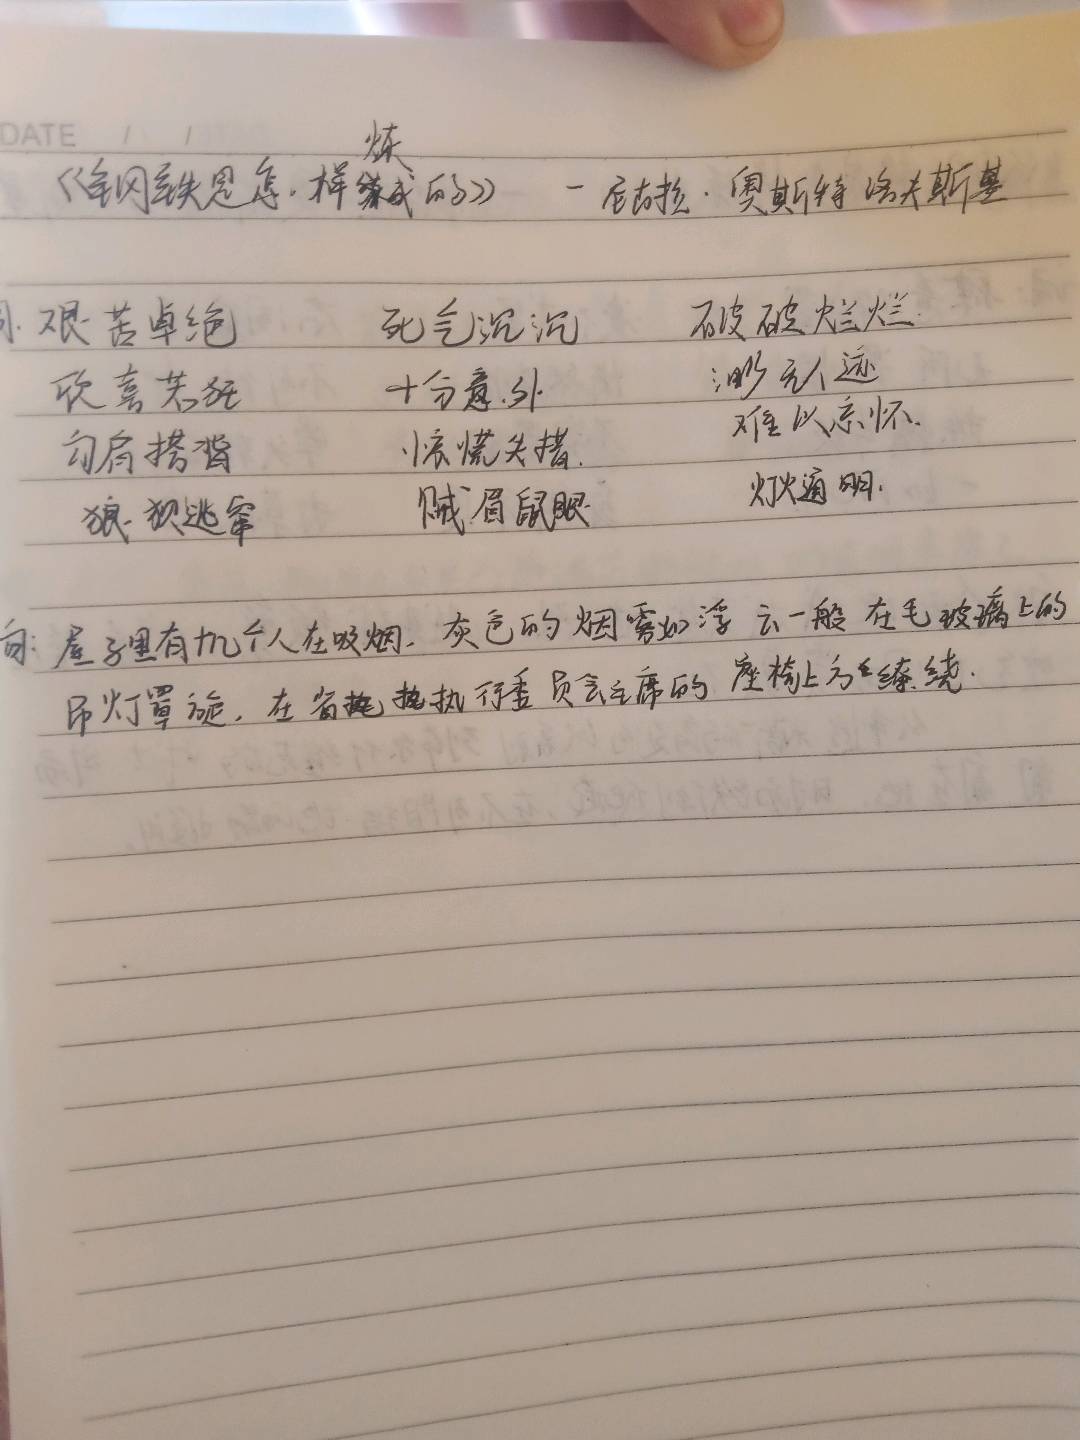 DATE / /
炼
《钢铁是怎样炼成的》 一尼古拉·奥斯特洛夫斯基
词. 艰苦卓绝 死气沉沉 破破烂烂
欣喜若狂 十分意外 渺无人迹
勾肩搭背 惊慌失措. 难以忘怀.
狼狈逃窜 贼眉鼠眼 灯火通明.
句: 屋子里有九个人在吸烟. 灰色的烟雾如浮云一般在毛玻璃上的
吊灯罩旋, 在省执行委员会主席的座椅上方缭绕.